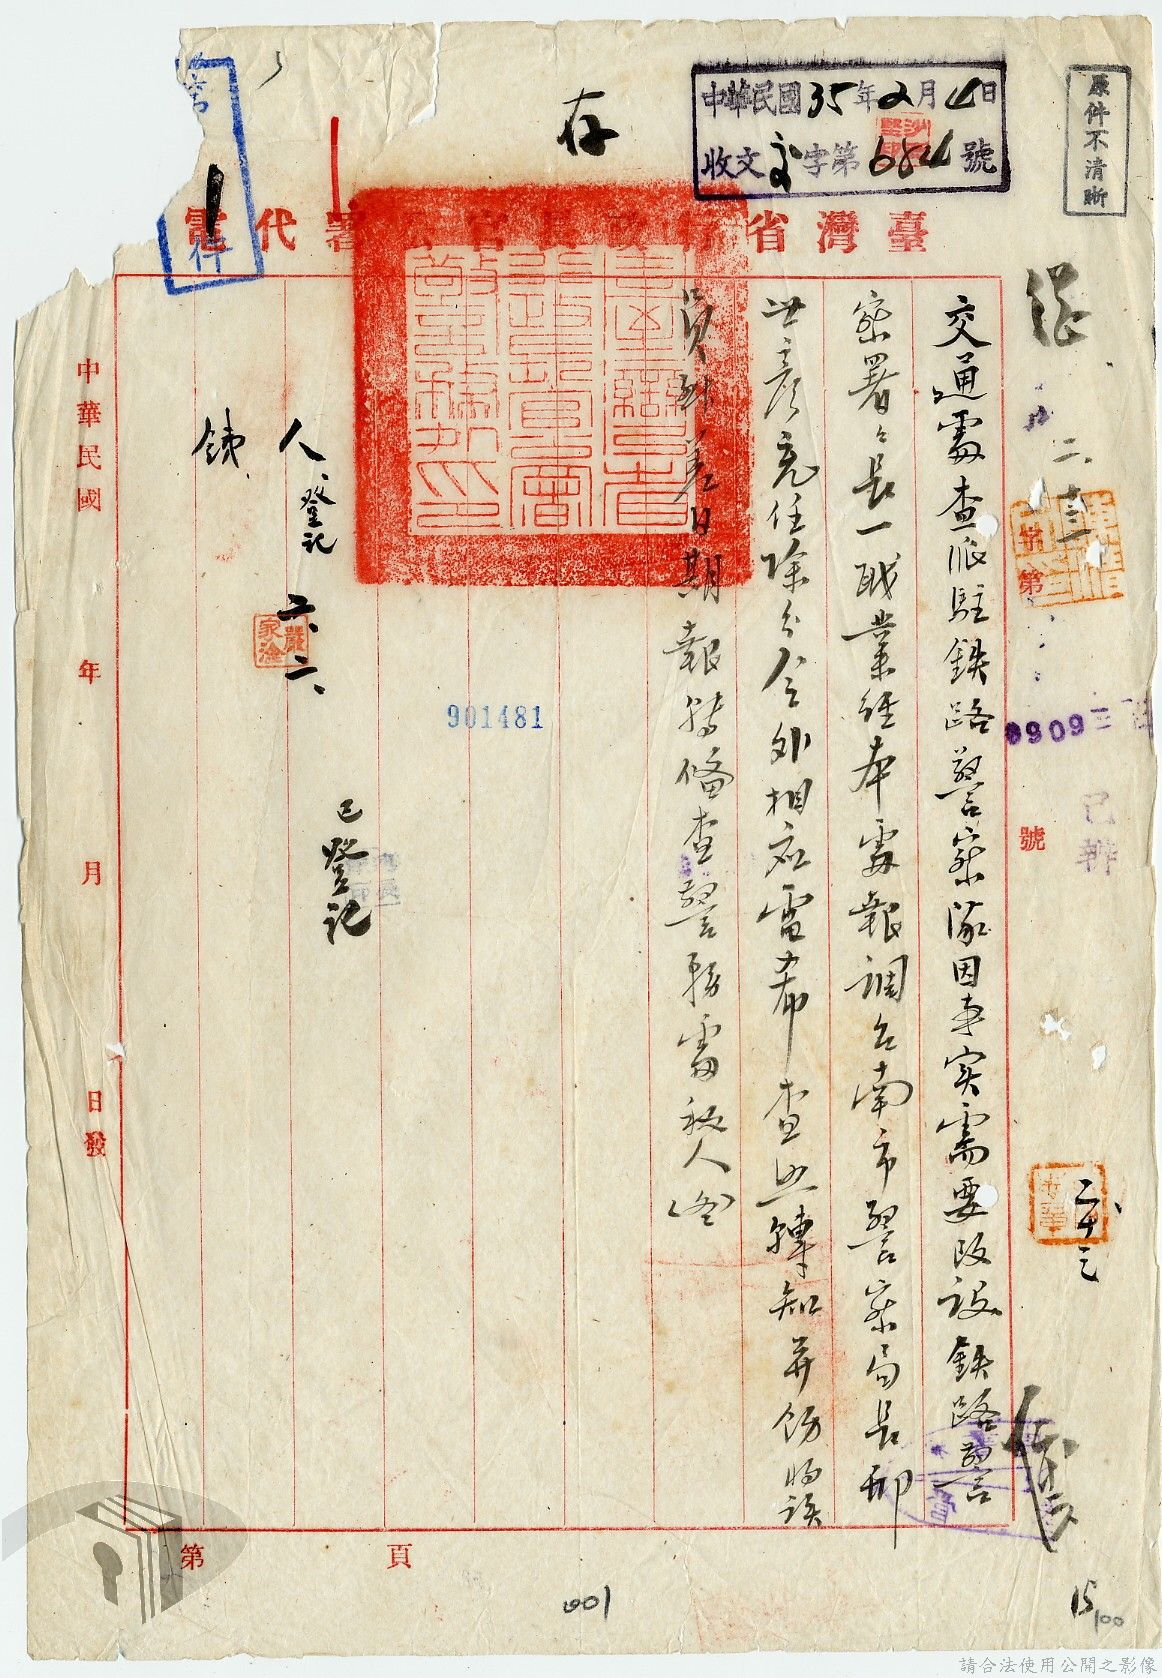 原件不清晰
中華民國35年2月4日
收文交字第684號
存
1件
臺灣省行政長官公署代電
號
交通處查派駐鉄路警察隊因事实需要改设鉄路警
察署々長一職業經本處報調台南市警察局長邢
世彥充任除分令外相应電希查照轉知并飭将該
員到差日期報轉俻查警務處秘人
人、登記
二、二、
嚴家淦
鉄、
已登記
已辦
901481
中華民國 年 月 日發
第 頁
001
15/100
請合法使用公開之影像